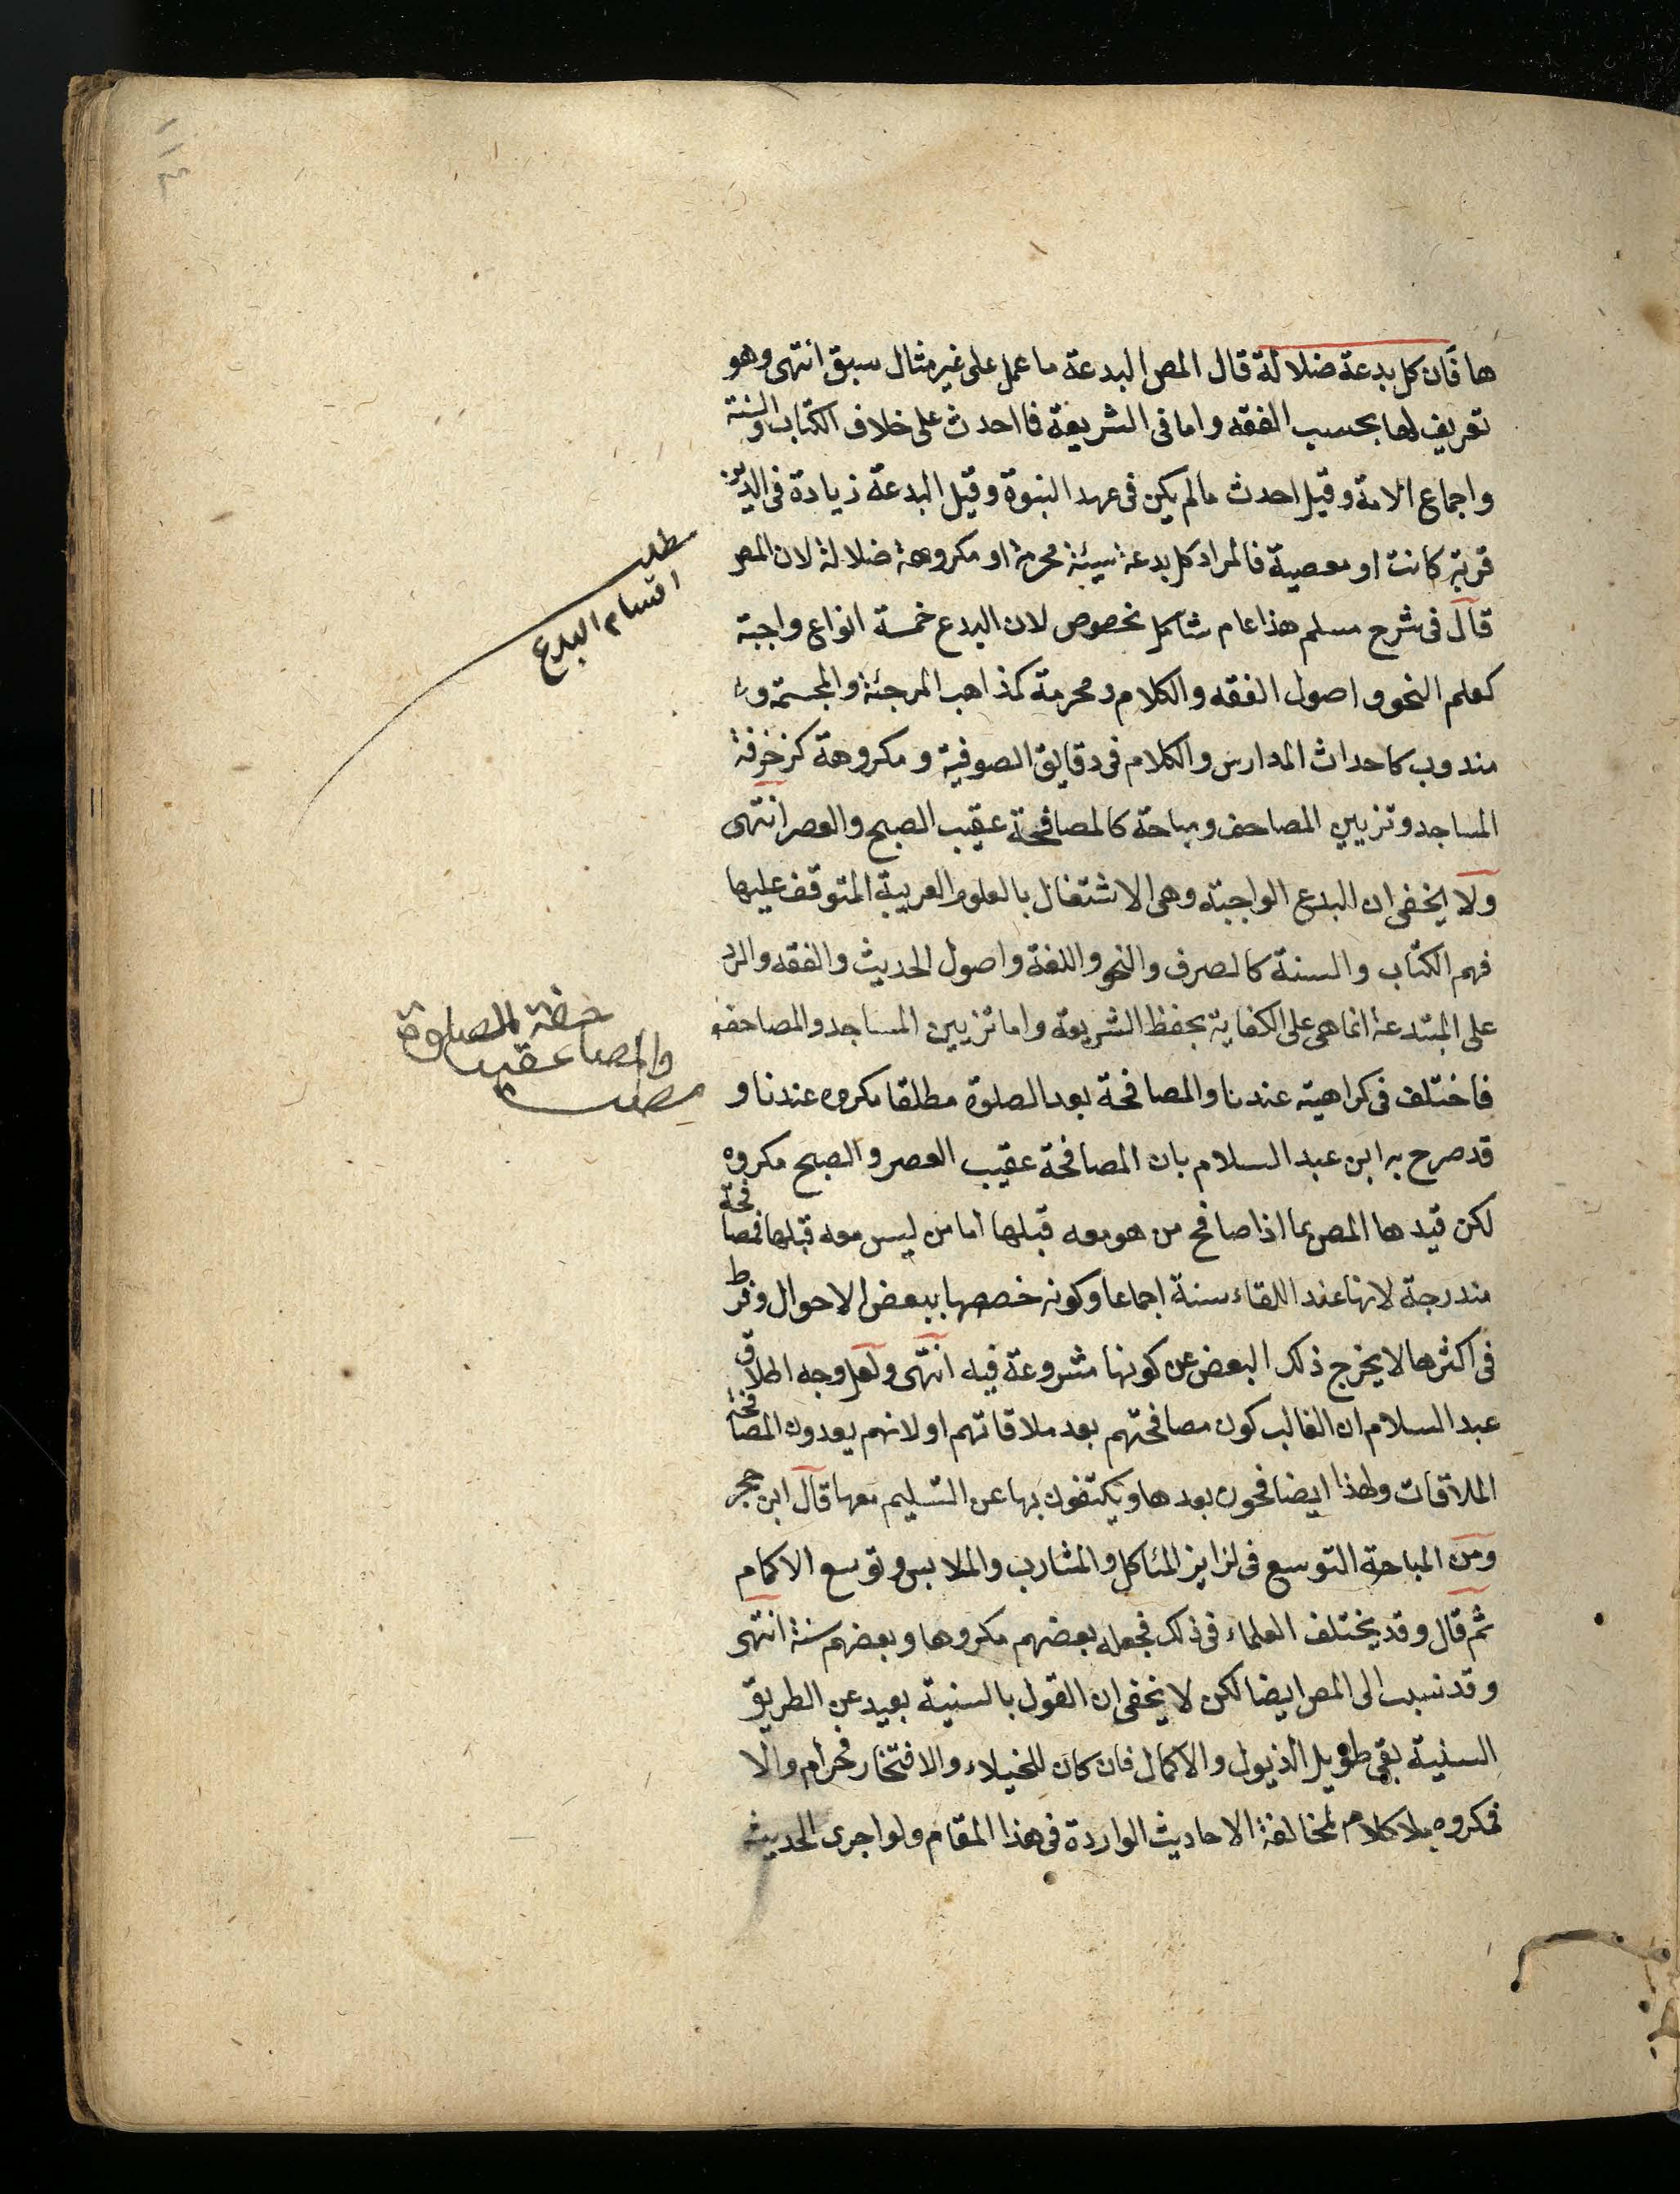 ها فان كل بدعة ضلالة قال المص البدعة ما عمل على غير مثال سبق انتهى وهو
تعريف لها بحسب الفقه واما فى الشريعة فا احدث على خلاف الكتاب والسنة
واجماع الامة وقيل احدث مالم يكن فى عهد النبوة وقيل البدعة زيادة فى الدين
قربة كانت او معصية فالمراد كل بدعة سيئة محرمة او مكروهة ضلالة لان المص
قال فى شرح مسلم هذا عام شاكل نخصوص لان البدع خمسة انواع واجبة
كعلم النحو واصول الفقه والكلام ومحرمة كمذاهب المرجئة والمجسمة و
مندوب كاحداث المدارس والكلام فى دقايق الصوفية ومكروهة كزخرفة
المساجد وتزيين المصاحف ومباحة كالمصافحة عقيب الصبح والعصر انتهى
ولا يخفى ان البدع الواجبة وهى الاشتغال بالعلوم العربية المتوقف عليها
فهم الكتاب والسنة كالصرف والنحو واللغة واصول الحديث والفقه والرد
على المبتدعة انما هى على الكفاية بحفظ الشريعة واما تزيين المساجد والمصاحف
فاختلف فى كراهيته عندنا والمصافحة بعد الصلوة مطلقا مكروه عندنا و
قد صرح به ابن عبد السلام بان المصافحة عقيب العصر والصبح مكروه
لكن قيدها المص بما اذا صافح من هو معه قبلها اما من ليس معه قبلها فمصافحة
مندرجة لانها عند اللقاء سنة اجماعا وكونه خصصها ببعض الاحوال وفرط
فى اكثرها لا يخرج ذلك البعض عن كونها مشروعة فيه انتهى ولعل وجه اطلاق
عبد السلام ان الغالب كون مصافحتهم بعد ملاقاتهم او لانهم يعدون المصافحة
الملاقات ولهذا ايضافحون بعدها ويكتفون بها عن التسليم معها قال ابن حجر
ومن المباحة التوسع فى لزايز المئاكل والمشارب والملابس وتوسع الاكمام
ثم قال وقد يختلف العلماء فى ذلك فجعله بعضهم مكروها وبعضهم سنة انتهى
وقد نسبب الى المص ايضا لكن لا يخفى ان القول بالسنية بعيد عن الطريق
السنية بقى طويل الذيول والاكمال فان كان للخيلاء والافتخار فحرام والا
فمكروه بلا كلام لمخالفة الاحاديث الواردة فى هذا المقام ولو اجرى الحديث
مطلب
اقسام البدع
مطلب
والمصافحة عقيب الصلوة